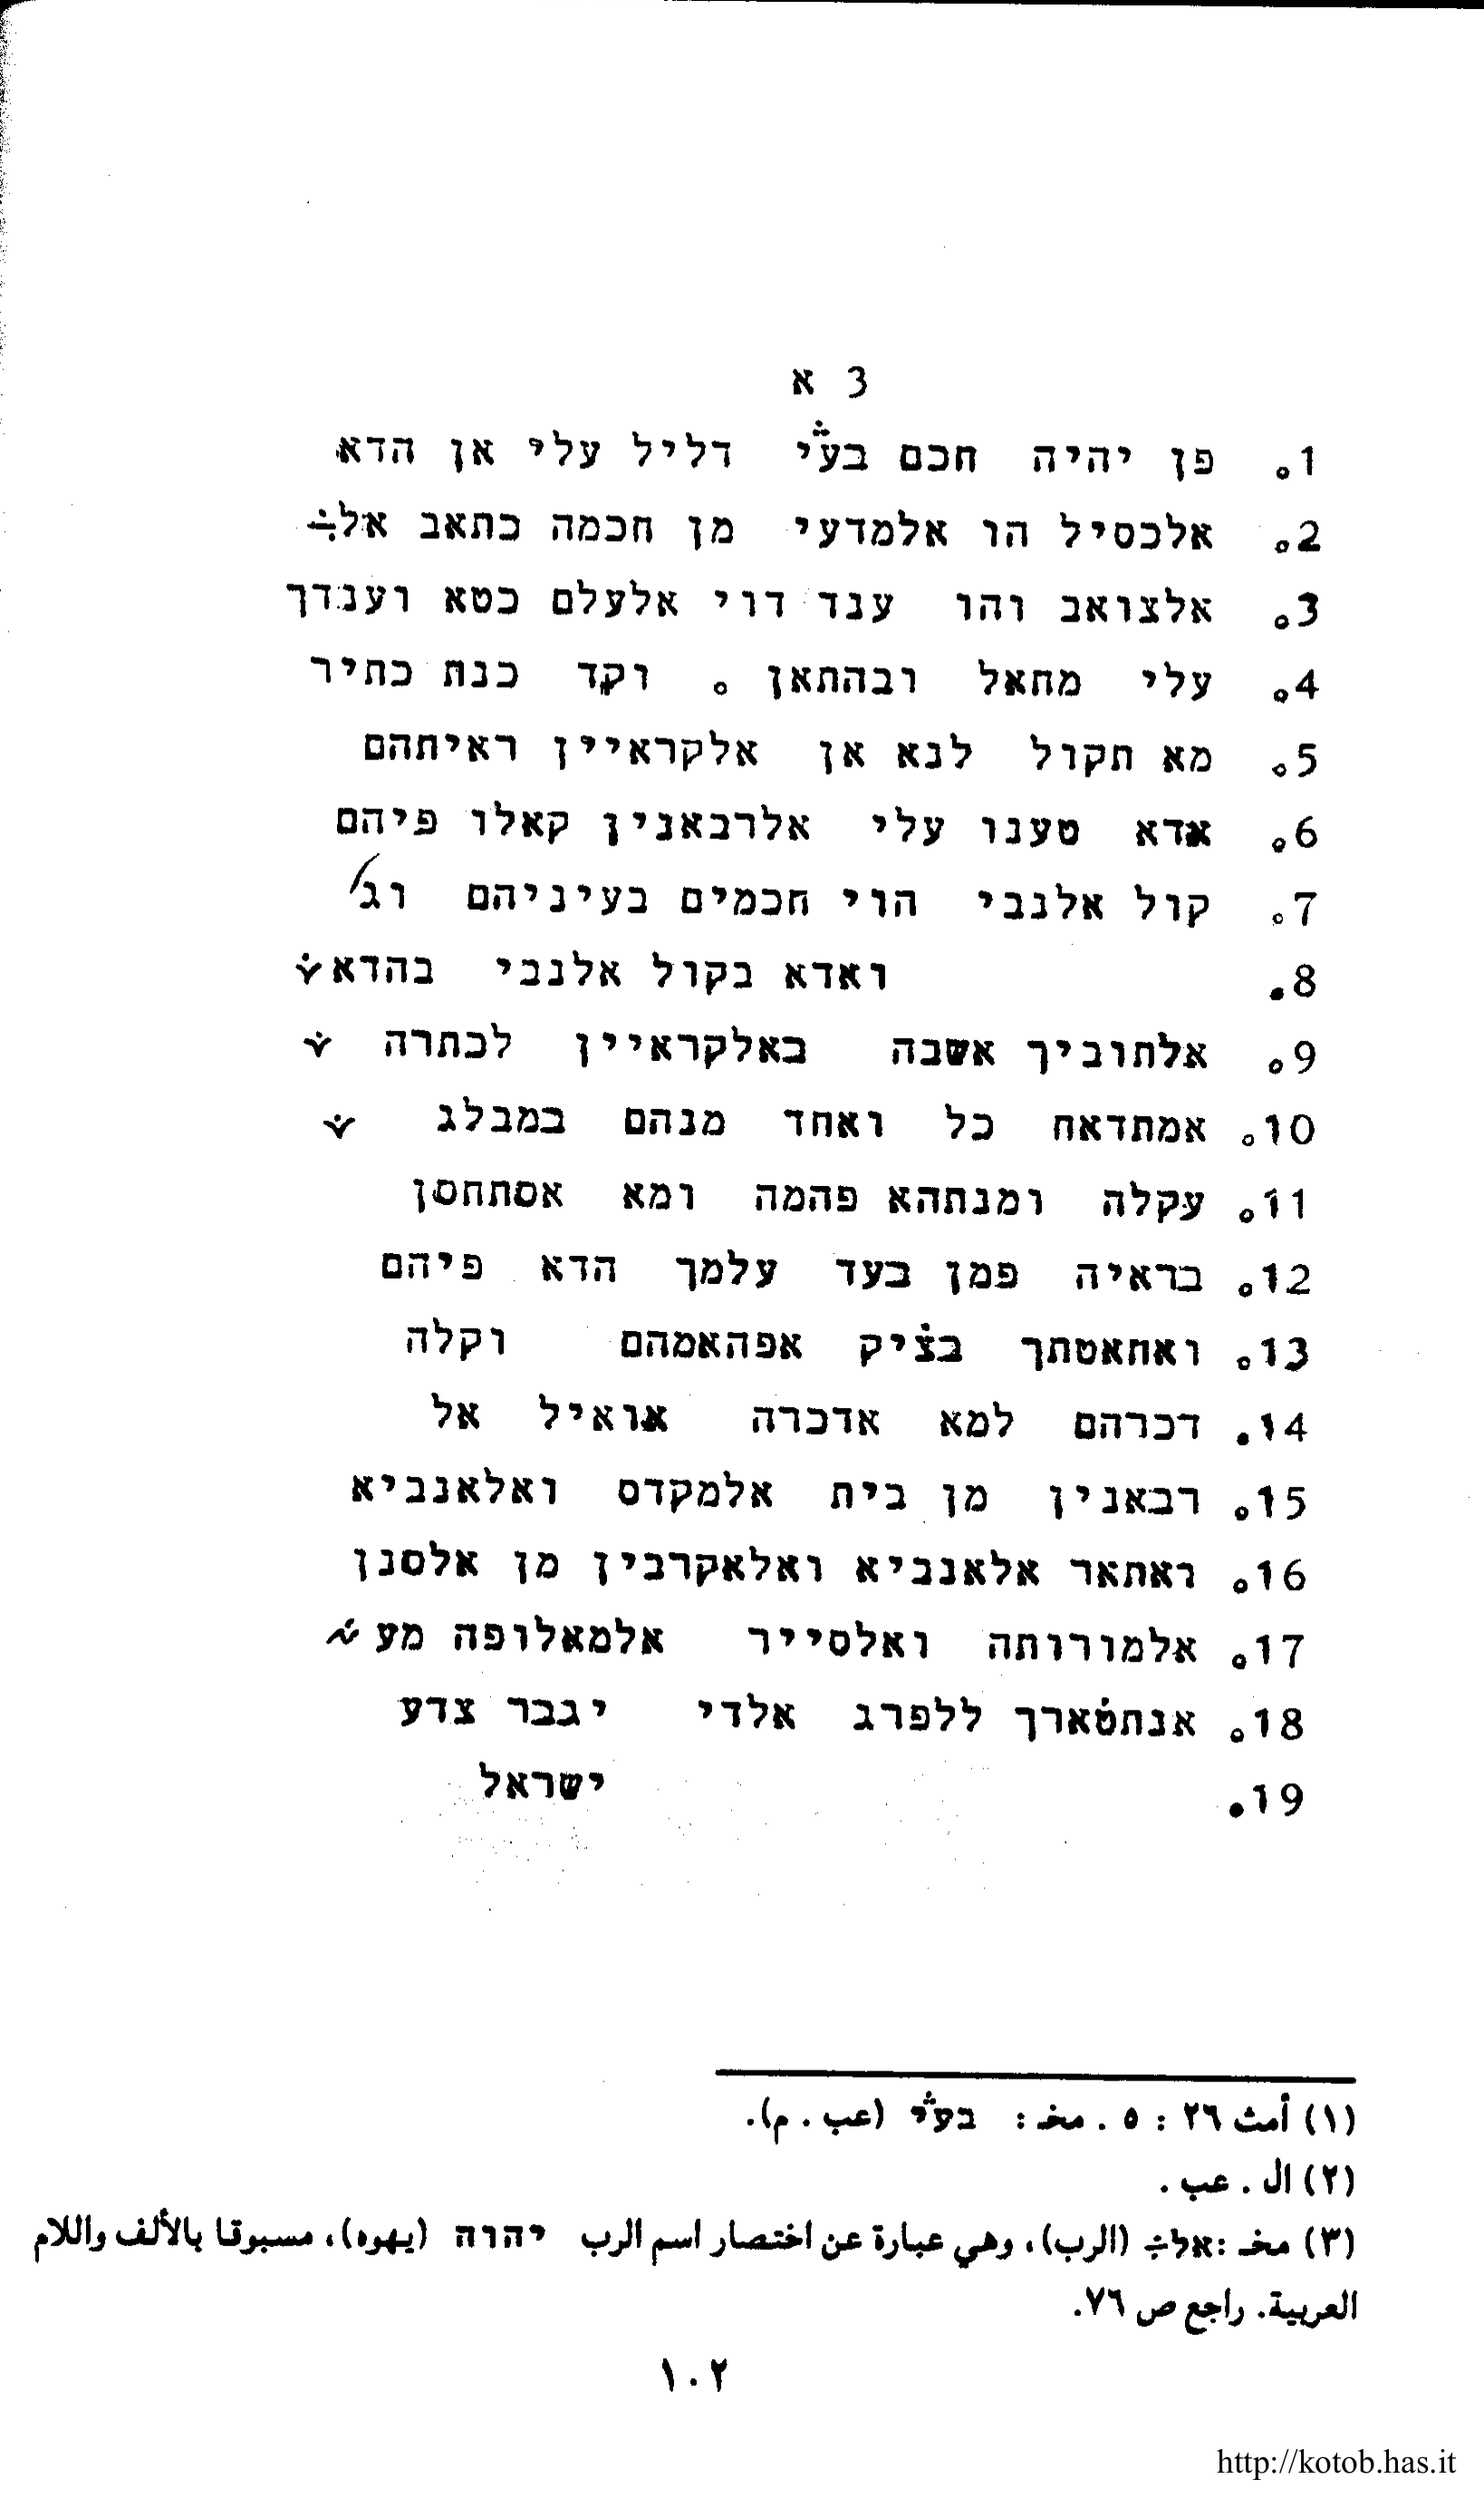 3 א
1. פן יהיה חכם בעי דליל עלי אן הדא
2. אלכסיל הו אלמדעי מן חכמה כתאב אל÷
3. אלצואב והו ענד דוי אלעלם כטא וענדך
4. עלי מחאל ובהתאן . וקד כנת כתיר
5. מא תקול לנא אן אלקראיין ראיתהם
6. אדא טענו עלי אלרבאנין קאלו פיהם
7. קול אלנבי הוי חכמים בעיניהם וג/
8. ואדא בקול אלנבי בהדא
9. אלתוביך אשבה באלקראיין לכתרה
10. אמתדאח כל ואחד מנהם במבלג
11. עקלה ומנתהא פהמה ומא אסתחסן
12. בראיה פמן בעד עלמך הדא פיהם
13. ואחאטתך בצ̇יק אפהאמהם וקלה
14. דכרהם למא אדכרה אואיל אל
15. רבאנין מן בית אלמקדס ואלאנביא
16. ואתאר אלאנביא ואלאקרבין מן אלסנן
17. אלמורותה ואלסייר אלמאלופה מע
18. אנתט̇ארך ללפרג אלדי יגבר צדע
19. ישראל
(١) أمث ٢٦ : ٥ . مخـ : בעי (عب . م).
(٢) ال . عب .
(٣) مخـ :אל÷ (الرب)، وهي عبارة عن اختصار اسم الرب יהוה (يهوه)، مسبوقا بالألف واللام
العربية. راجع ص ٧٦.
١٠٢
http://kotob.has.it